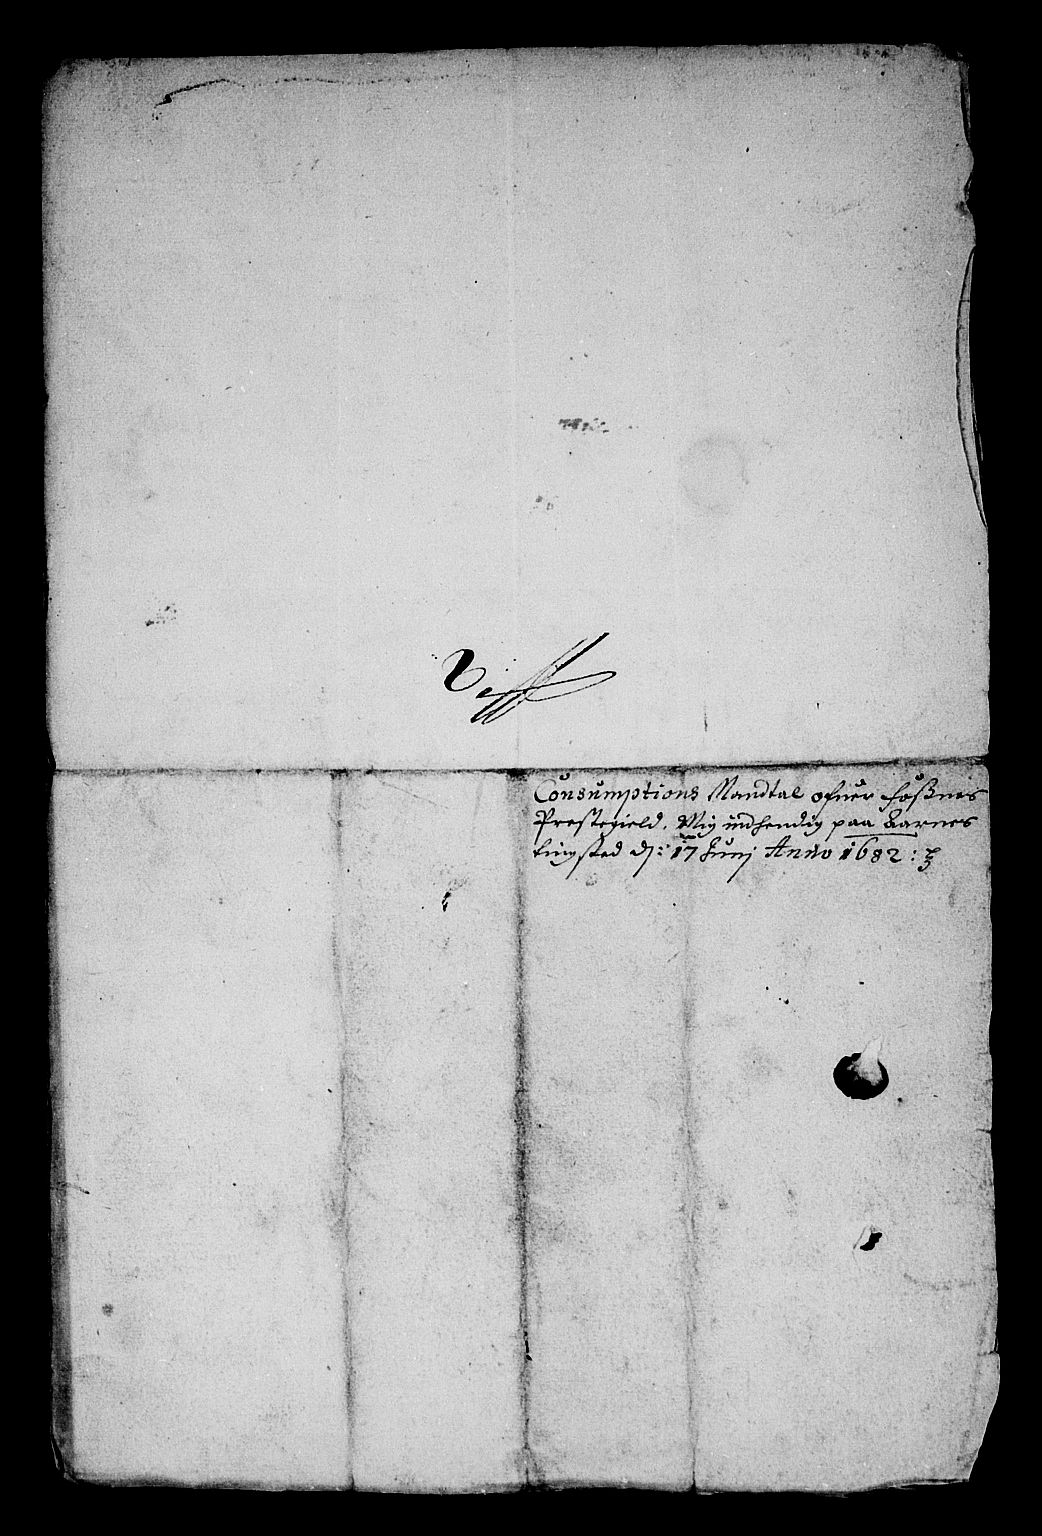 Consumptions Mandtal ofuer Foßnes
Prestegield, Mig indhendig paa Aarnes
tingsted dj: 17 Junj Anno 1682: